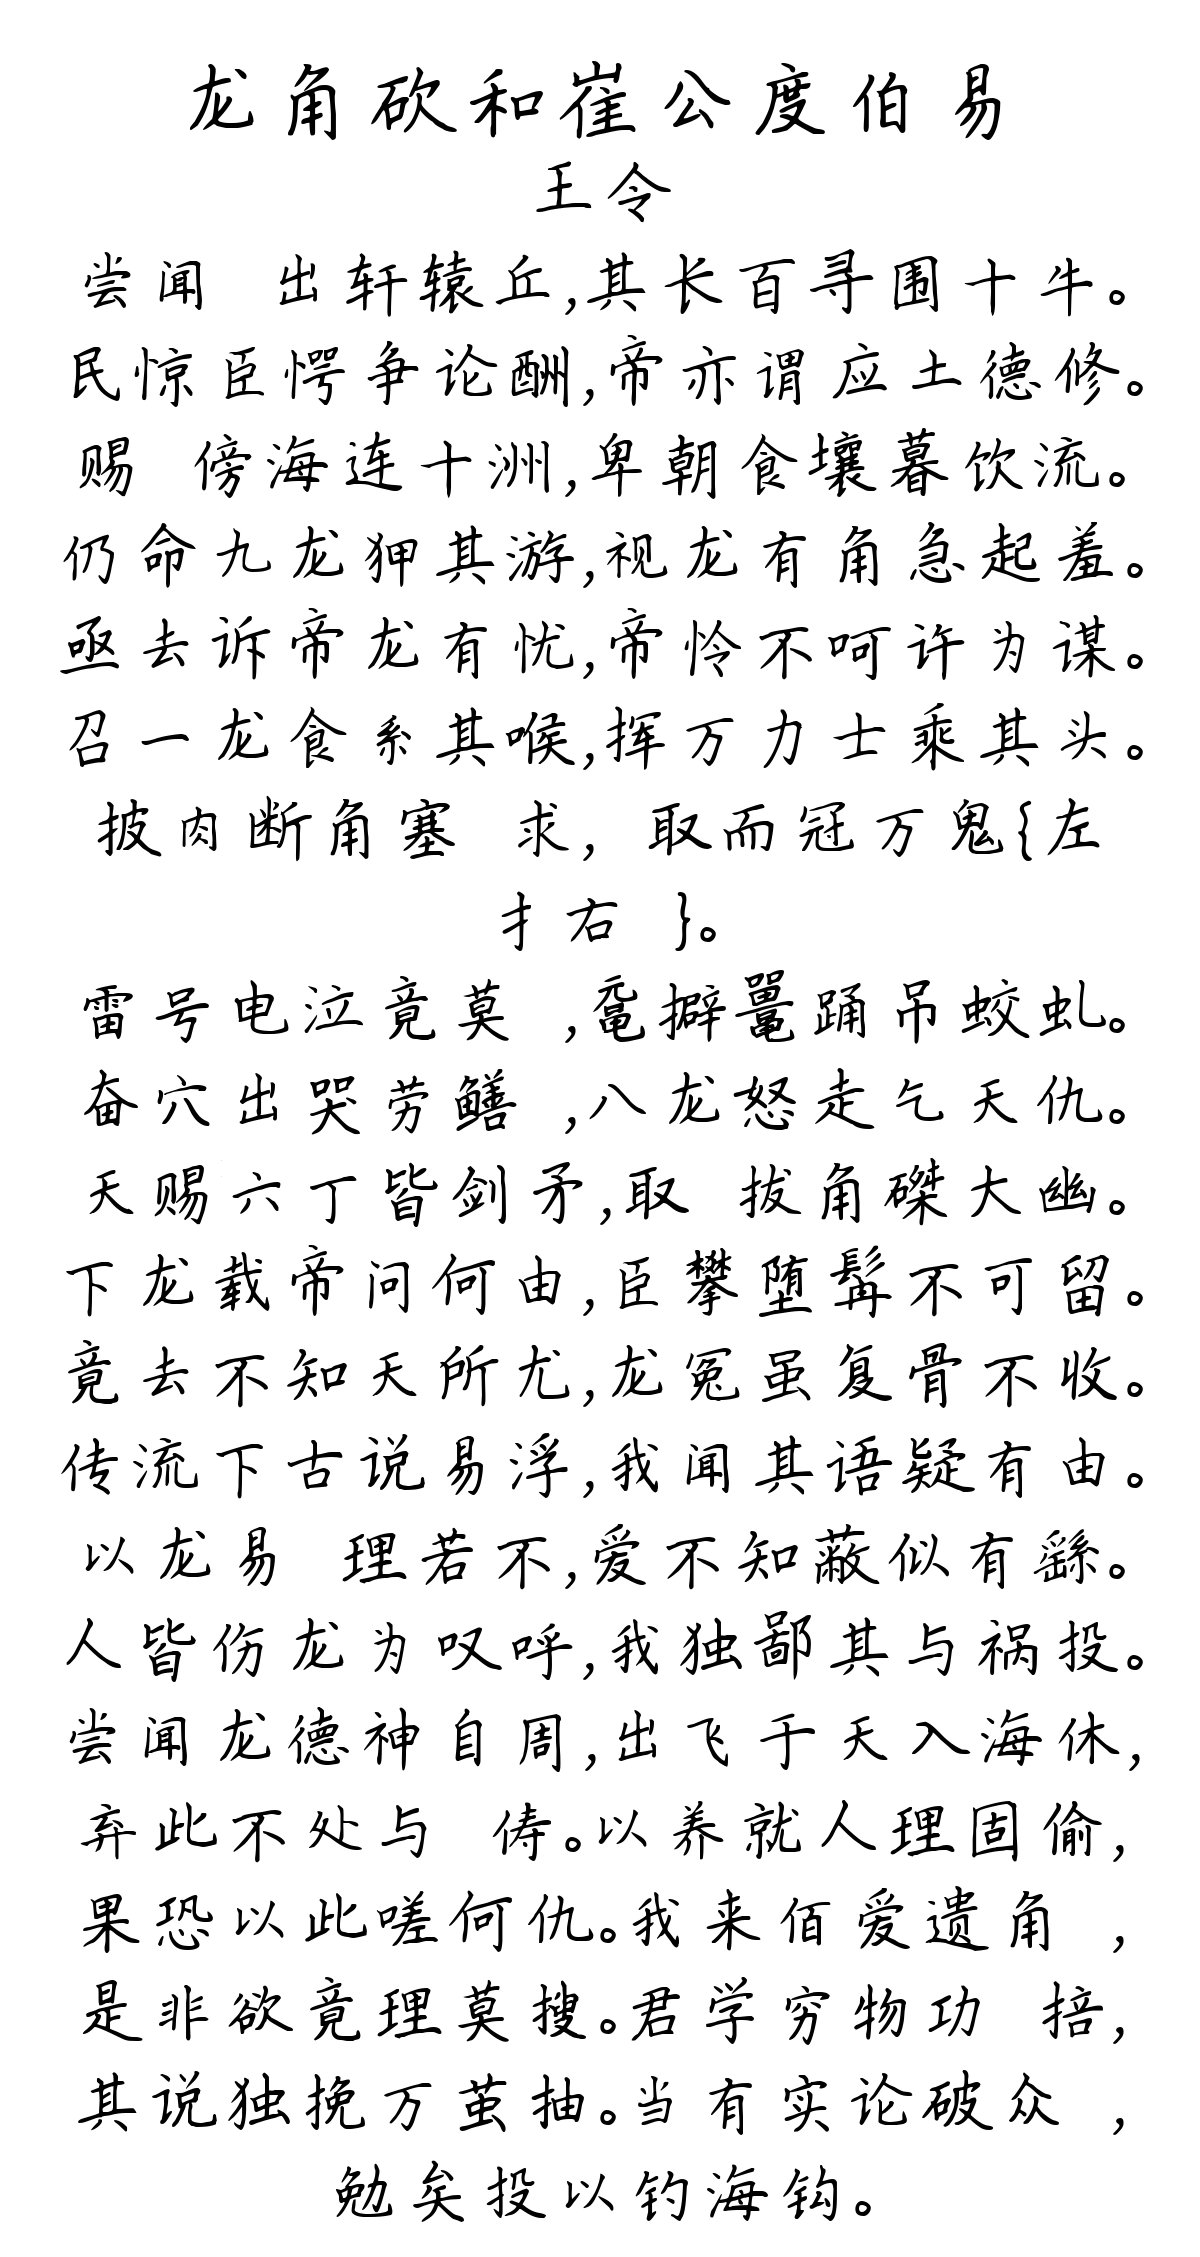 龙角砍和崔公度伯易
王令
尝闻 出轩辕丘,其长百寻围十牛。
民惊臣愕争论酬,帝亦谓应土德修。
赐 傍海连十洲,卑朝食壤暮饮流。
仍命九龙狎其游,视龙有角急起羞。
亟去诉帝龙有忧,帝怜不呵许为谋。
召一龙食系其喉,挥万力士乘其头。
披肉断角塞 求, 取而冠万鬼{左
扌右 }。
雷号电泣竟莫 ,鼋擗鼍踊吊蛟虬。
奋穴出哭劳鳝 ,八龙怒走乞天仇。
天赐六丁皆剑矛,取 拔角磔大幽。
下龙载帝问何由,臣攀堕髯不可留。
竟去不知天所尤,龙冤虽复骨不收。
传流下古说易浮,我闻其语疑有由。
以龙易 理若不,爱不知蔽似有繇。
人皆伤龙为叹呼,我独鄙其与祸投。
尝闻龙德神自周,出飞于天入海休,
弃此不处与 俦。以养就人理固偷,
果恐以此嗟何仇。我来佰爱遗角 ,
是非欲竟理莫搜。君学穷物功 掊,
其说独挽万茧抽。当有实论破众 ,
勉矣投以钓海钩。